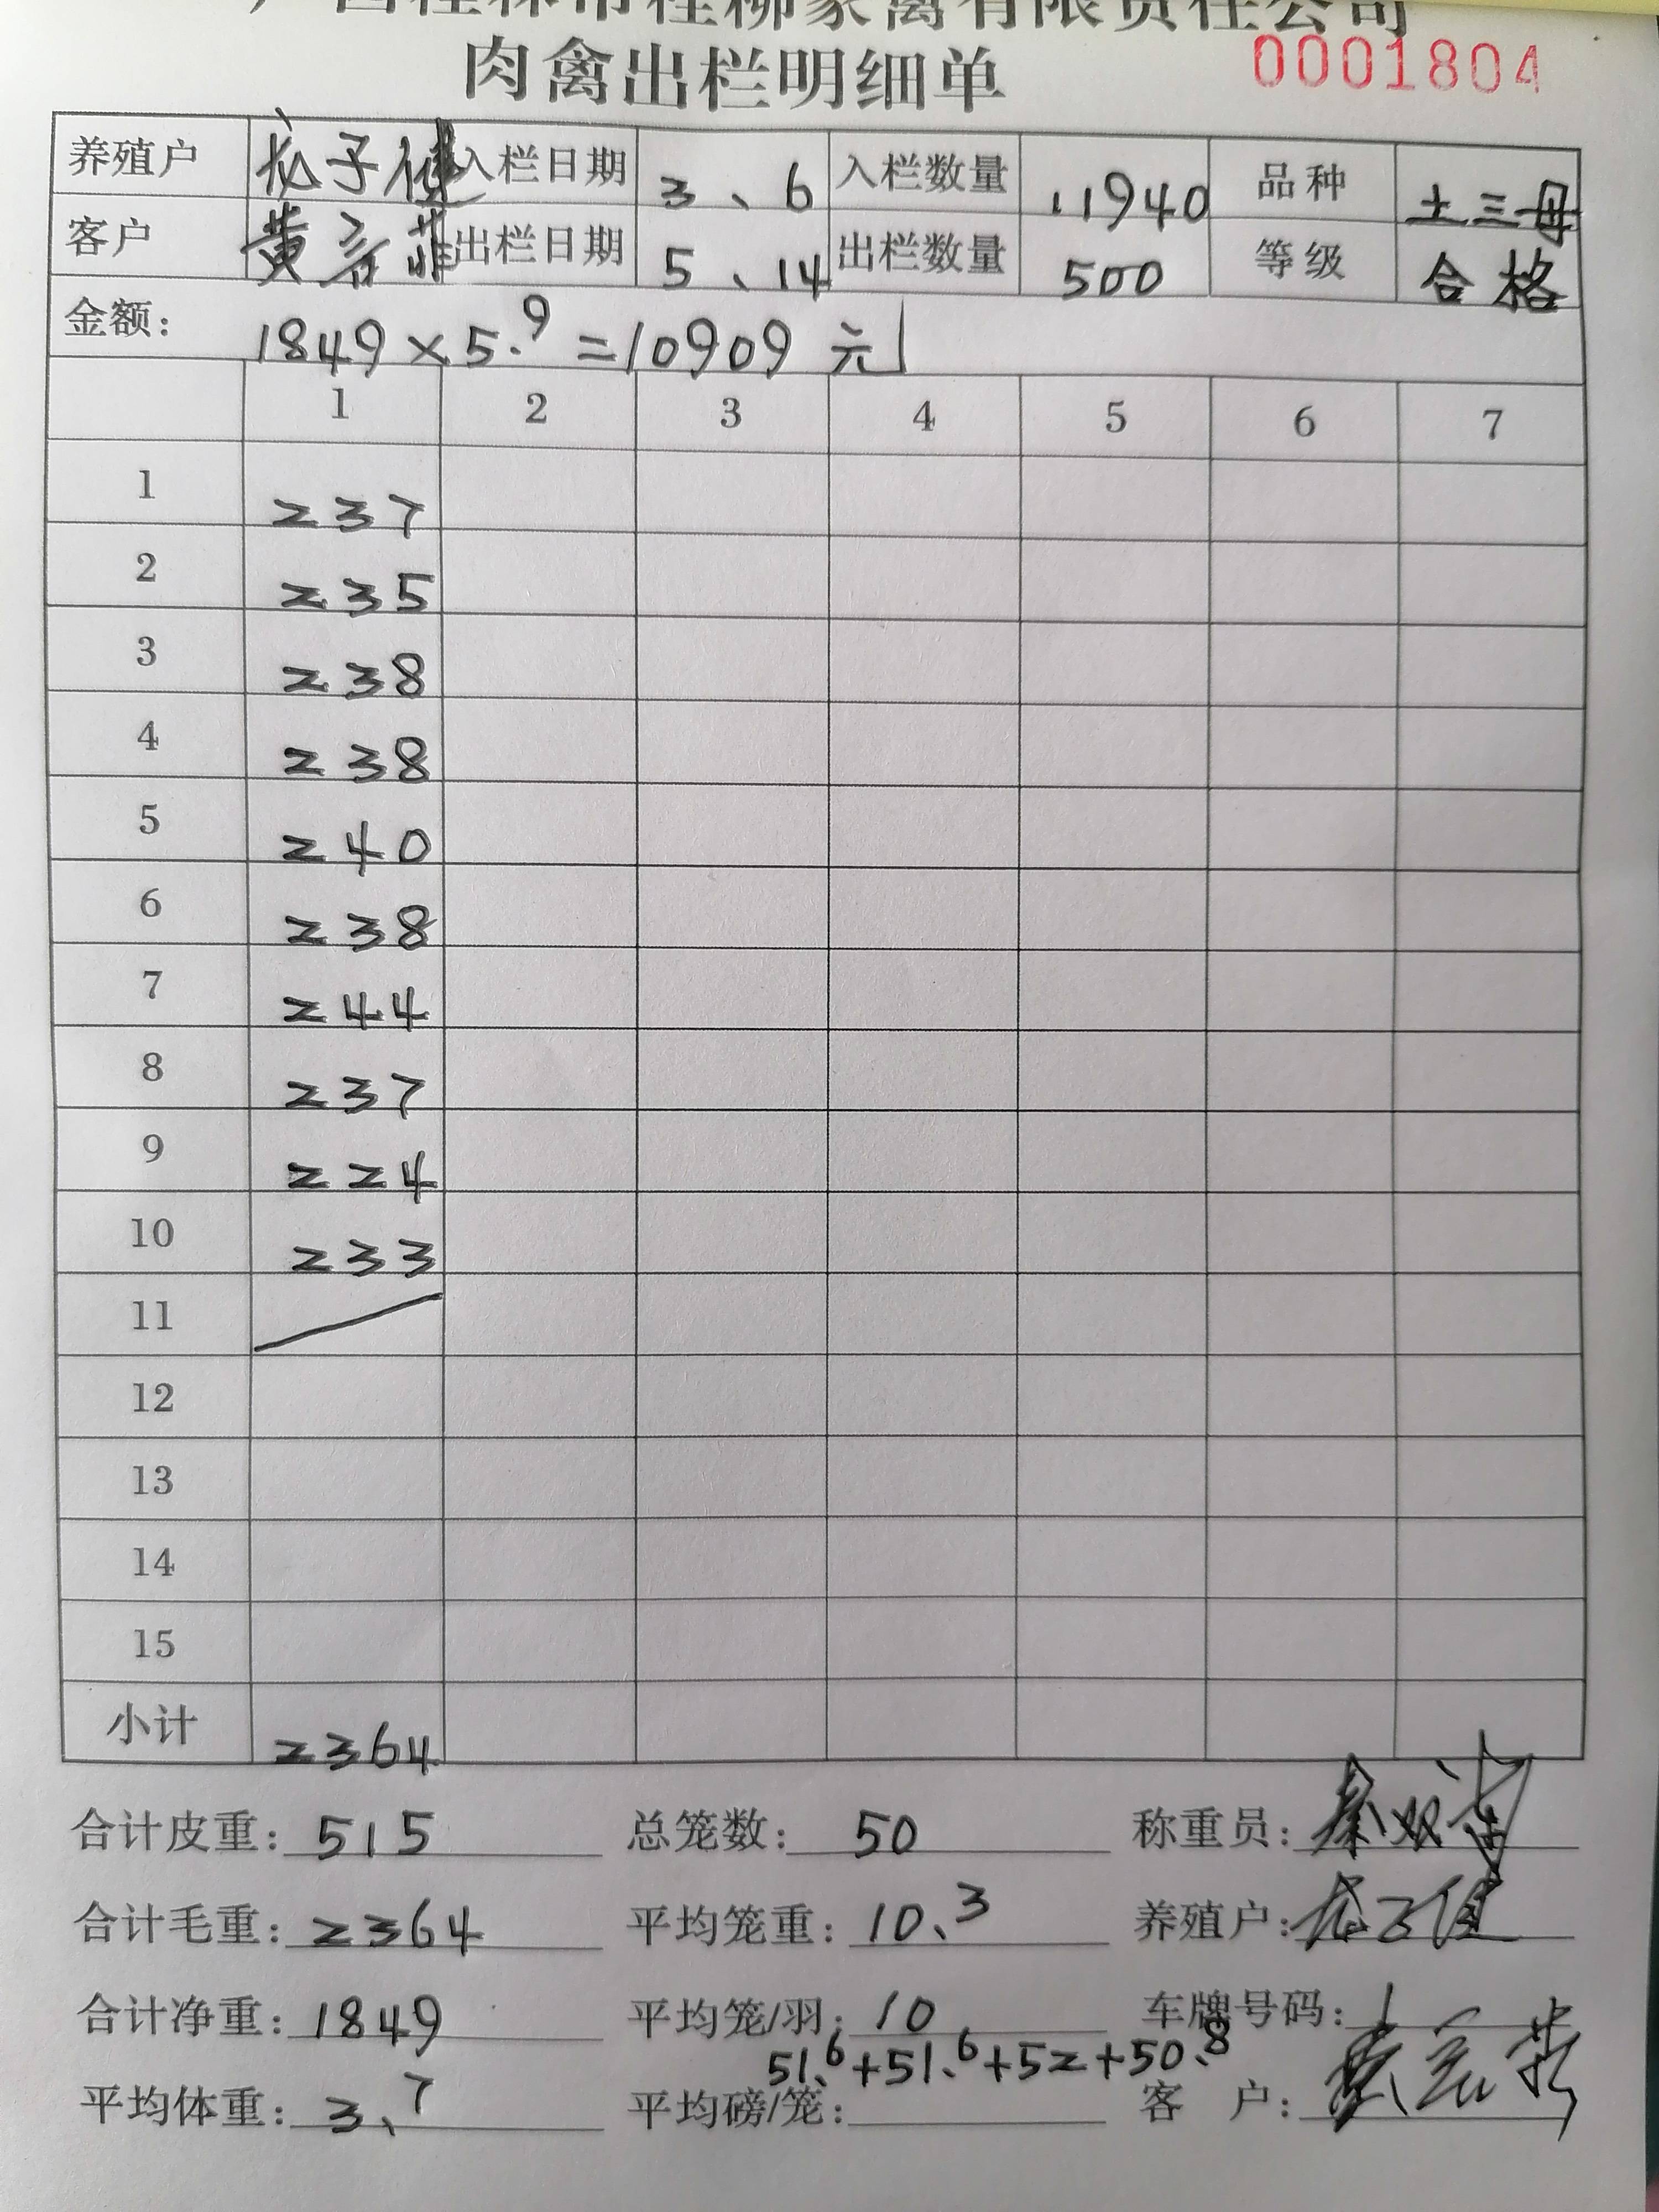 广西桂林市桂柳家禽有限责任公司
肉禽出栏明细单 0001804
养殖户 龙子健 入栏日期 3、6 入栏数量 11940 品种 土三母
客户 黄 菲 出栏日期 5、14 出栏数量 500 等级 合格
金额: 1849×5.9=10909元
1 2 3 4 5 6 7
1 237
2 235
3 238
4 238
5 240
6 238
7 244
8 237
9 224
10 233
11
12
13
14
15
小计 2364
合计皮重: 515 总笼数: 50 称重员: 秦
合计毛重: 2364 平均笼重: 10、3 养殖户: 龙子健
合计净重: 1849 平均笼/羽: 10 车牌号码:
51、6+51、6+52+50、8
平均体重: 3、7 平均磅/笼: 客户: